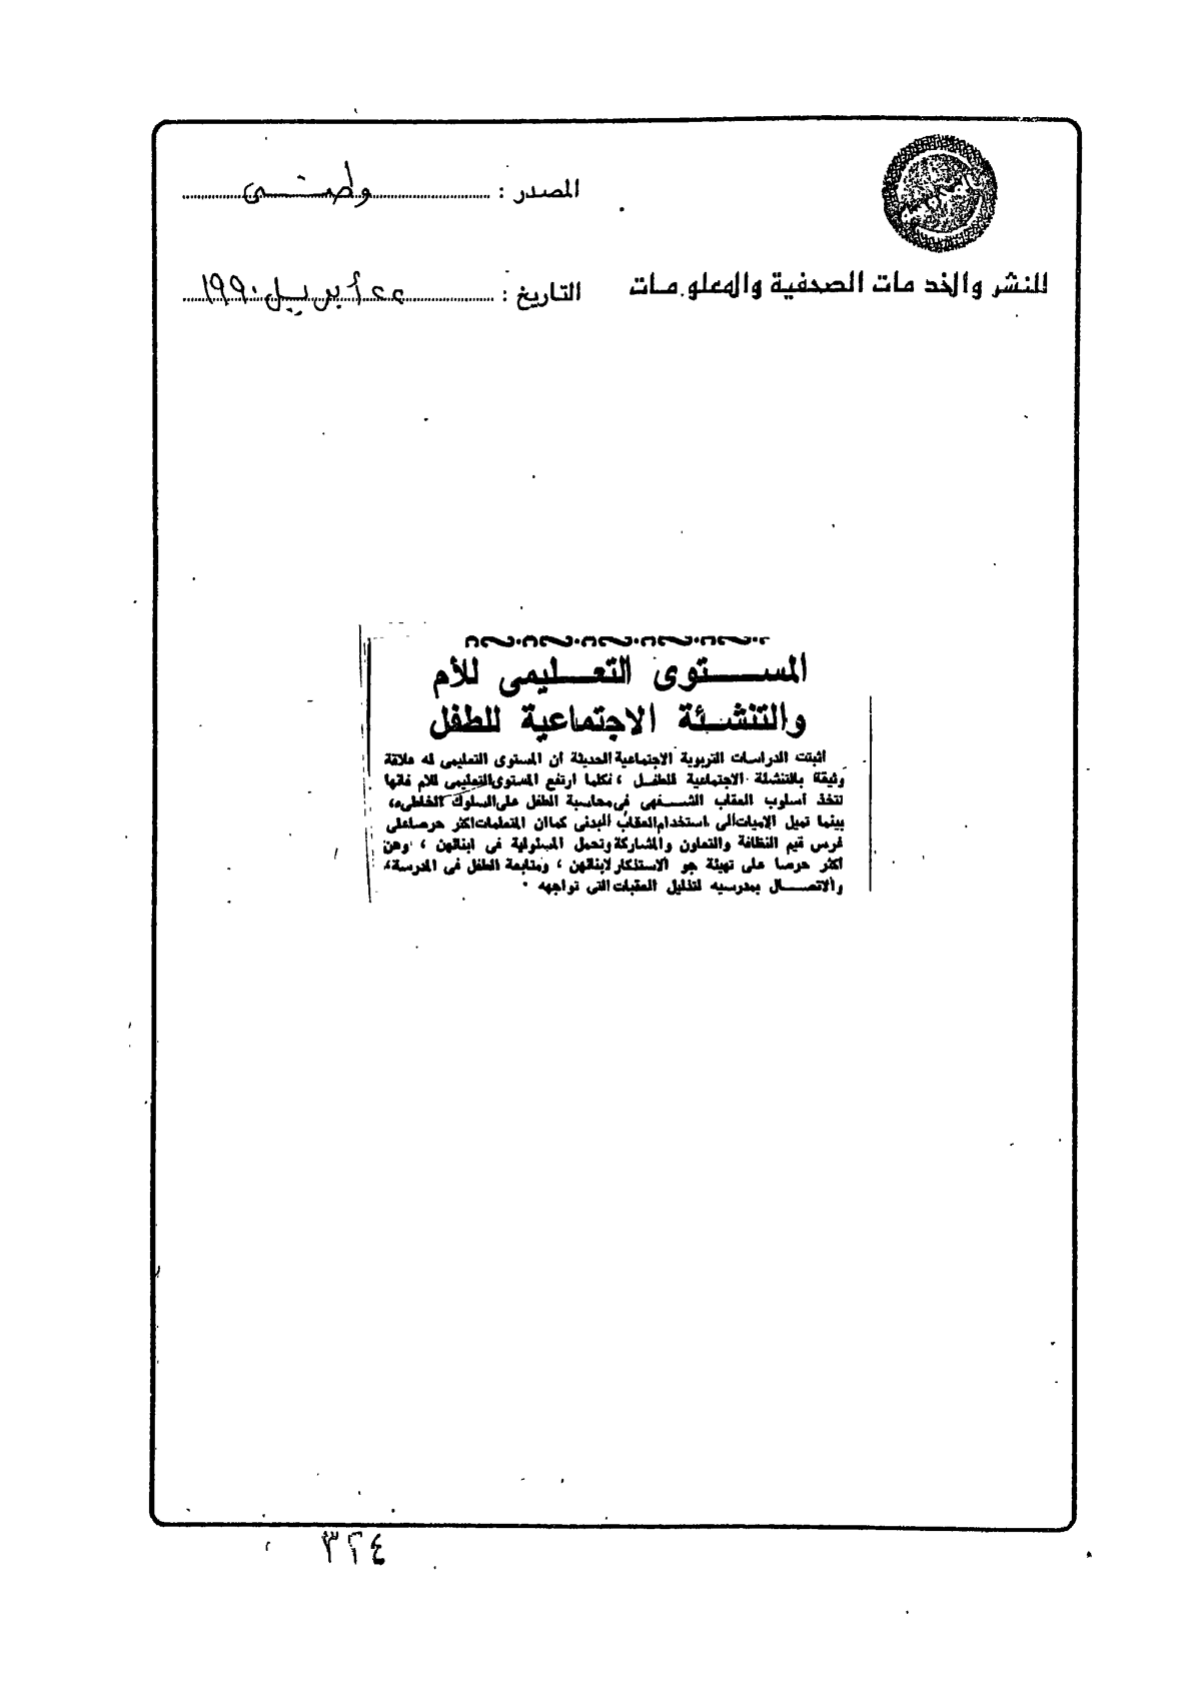 المصدر : وطنى
للنشر والخدمات الصحفية والمعلومات
التاريخ : ٢٢ أبريل ١٩٩٠
المستوى التعليمى للأم
والتنشئة الاجتماعية للطفل
اثبتت الدراسات التربوية الاجتماعية الحديثة ان المستوى التعليمى له علاقة
وثيقة بالتنشئة الاجتماعية للطفل ، فكلما ارتفع المستوى التعليمى للام فانها
تتخذ اسلوب العقاب الشفهى فى محاسبة الطفل على السلوك الخاطىء،
بينما تميل الاميات الى استخدام العقاب البدنى كما ان المتعلمات اكثر حرصا على
غرس قيم النظافة والتعاون والمشاركة وتحمل المسئولية فى ابنائهن ، وهن
اكثر حرصا على تهيئة جو الاستذكار لابنائهن ، ومتابعة الطفل فى المدرسة،
والاتصال بمدرسيه لتذليل العقبات التى تواجهه .
٣٢٤